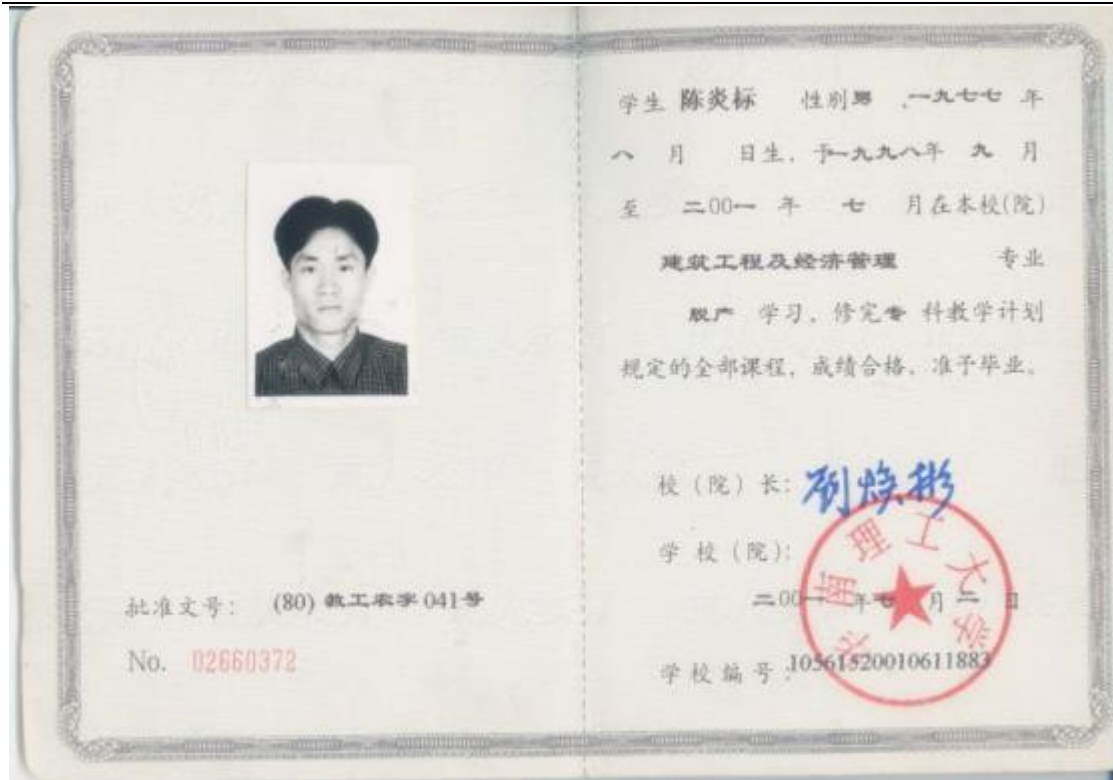 批准文号： (80) 教工农字 041号
No. 02660372
学生 陈炎标 性别男 ,一九七七 年
八 月 日生, 于一九九八年 九 月
至 二00一 年 七 月在本校(院)
建筑工程及经济管理 专业
脱产 学习, 修完专 科教学计划
规定的全部课程, 成绩合格, 准予毕业。
校（院）长: 刘焕彬
学 校（院）:
华南理工大学
二00一 年七月二 日
学校编号:10561520010611883